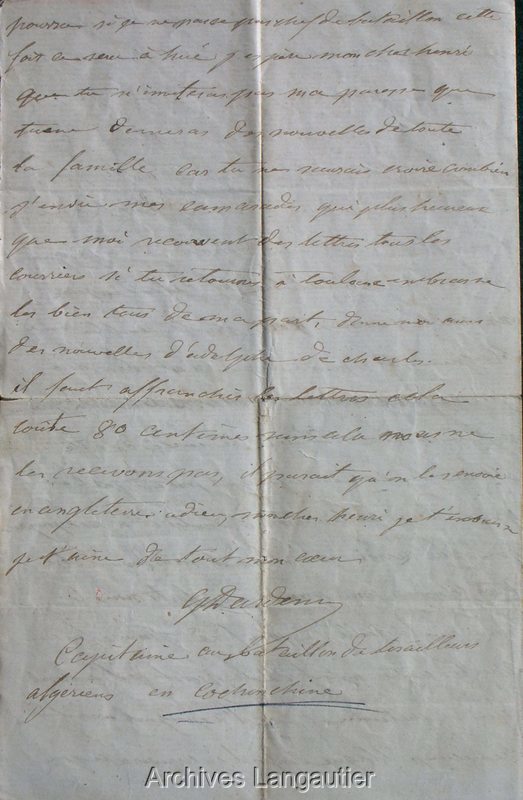 pourra si je ne passe pas chef de bataillon cette
fois ce sera à hué j'espère mon cher henri
que tu n'imiteras pas ma paresse que
tu me donneras des nouvelles de toute
la famille car tu ne saurais croire combien
j'envie mes camarades qui plus heureux
que moi recoivent des lettres tous les
courriers si tu retournes à toulouse embrasse
les bien tous de ma part, donne moi aussi
des nouvelles d'adolphe de charles.
il faut affranchir les lettres cela
coûte 80 centimes sans cela nous ne
les recevons pas, il parait qu'on les envoie
en angleterre adieu mon cher henri je t'embrasse
je t'aime de tout mon cœur
Capitaine au bataillon de tirailleurs
algériens en cochinchine
Archives Langautier